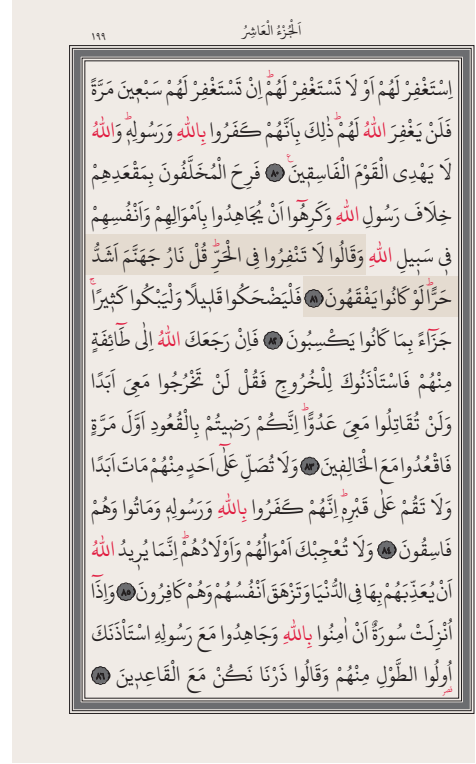 اَلْجُزْءُ الْعَاشِرُ
١٩٩
اِسْتَغْفِرْ لَهُمْ اَوْ لَا تَسْتَغْفِرْ لَهُمْۜ اِنْ تَسْتَغْفِرْ لَهُمْ سَبْعٖينَ مَرَّةً
فَلَنْ يَغْفِرَ اللّٰهُ لَهُمْۜ ذٰلِكَ بِاَنَّهُمْ كَفَرُوا بِاللّٰهِ وَرَسُولِهٖۜ وَاللّٰهُ
لَا يَهْدِى الْقَوْمَ الْفَاسِقٖينَ۟ ﴿٨٠﴾ فَرِحَ الْمُخَلَّفُونَ بِمَقْعَدِهِمْ
خِلَافَ رَسُولِ اللّٰهِ وَكَرِهُٓوا اَنْ يُجَاهِدُوا بِاَمْوَالِهِمْ وَاَنْفُسِهِمْ
فٖى سَبٖيلِ اللّٰهِ وَقَالُوا لَا تَنْفِرُوا فِى الْحَرِّۜ قُلْ نَارُ جَهَنَّمَ اَشَدُّ
حَرًّاۜ لَوْ كَانُوا يَفْقَهُونَ ﴿٨١﴾ فَلْيَضْحَكُوا قَلٖيلًا وَلْيَبْكُوا كَثٖيرًاۚ
جَزَٓاءً بِمَا كَانُوا يَكْسِبُونَ ﴿٨٢﴾ فَاِنْ رَجَعَكَ اللّٰهُ اِلٰى طَٓائِفَةٍ
مِنْهُمْ فَاسْتَاْذَنُوكَ لِلْخُرُوجِ فَقُلْ لَنْ تَخْرُجُوا مَعِىَ اَبَدًا
وَلَنْ تُقَاتِلُوا مَعِىَ عَدُوًّاۜ اِنَّكُمْ رَضٖيتُمْ بِالْقُعُودِ اَوَّلَ مَرَّةٍ
فَاقْعُدُوا مَعَ الْخَالِفٖينَ ﴿٨٣﴾ وَلَا تُصَلِّ عَلٰٓى اَحَدٍ مِنْهُمْ مَاتَ اَبَدًا
وَلَا تَقُمْ عَلٰى قَبْرِهٖۜ اِنَّهُمْ كَفَرُوا بِاللّٰهِ وَرَسُولِهٖ وَمَاتُوا وَهُمْ
فَاسِقُونَ ﴿٨٤﴾ وَلَا تُعْجِبْكَ اَمْوَالُهُمْ وَاَوْلَادُهُمْۜ اِنَّمَا يُرٖيدُ اللّٰهُ
اَنْ يُعَذِّبَهُمْ بِهَا فِى الدُّنْيَا وَتَزْهَقَ اَنْفُسُهُمْ وَهُمْ كَافِرُونَ ﴿٨٥﴾ وَاِذَٓا
اُنْزِلَتْ سُورَةٌ اَنْ اٰمِنُوا بِاللّٰهِ وَجَاهِدُوا مَعَ رَسُولِهِ اسْتَاْذَنَكَ
اُولُوا الطَّوْلِ مِنْهُمْ وَقَالُوا ذَرْنَا نَكُنْ مَعَ الْقَاعِدٖينَ ﴿٨٦﴾
قصر